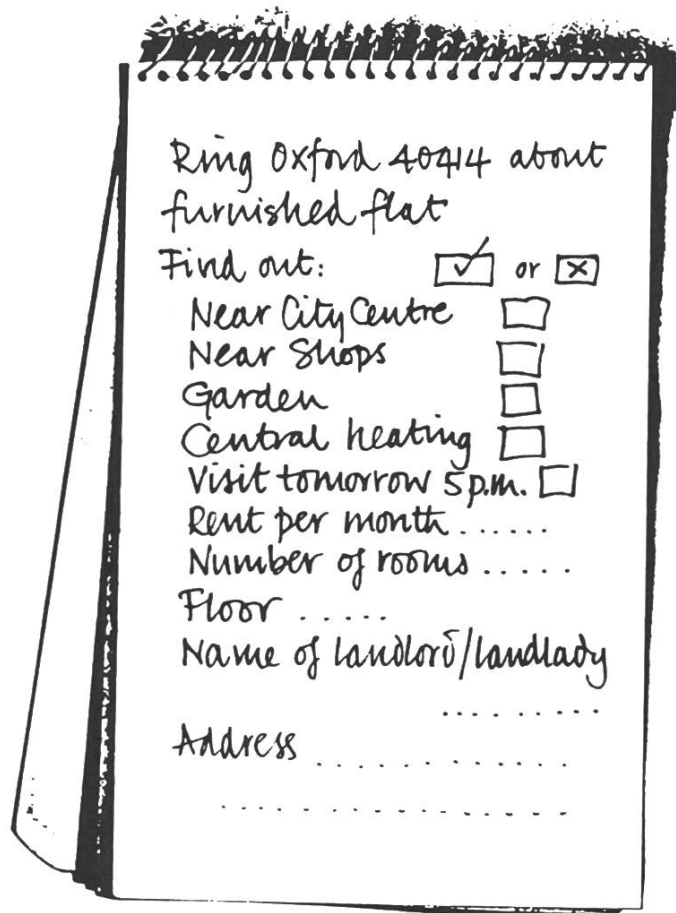 Ring Oxford 40414 about
furnished flat
Find out: ✓ or ×
Near City Centre
Near Shops
Garden
Central heating
Visit tomorrow 5 p.m.
Rent per month ......
Number of rooms .....
Floor .....
Name of landlord/landlady
.........
Address .............
.................